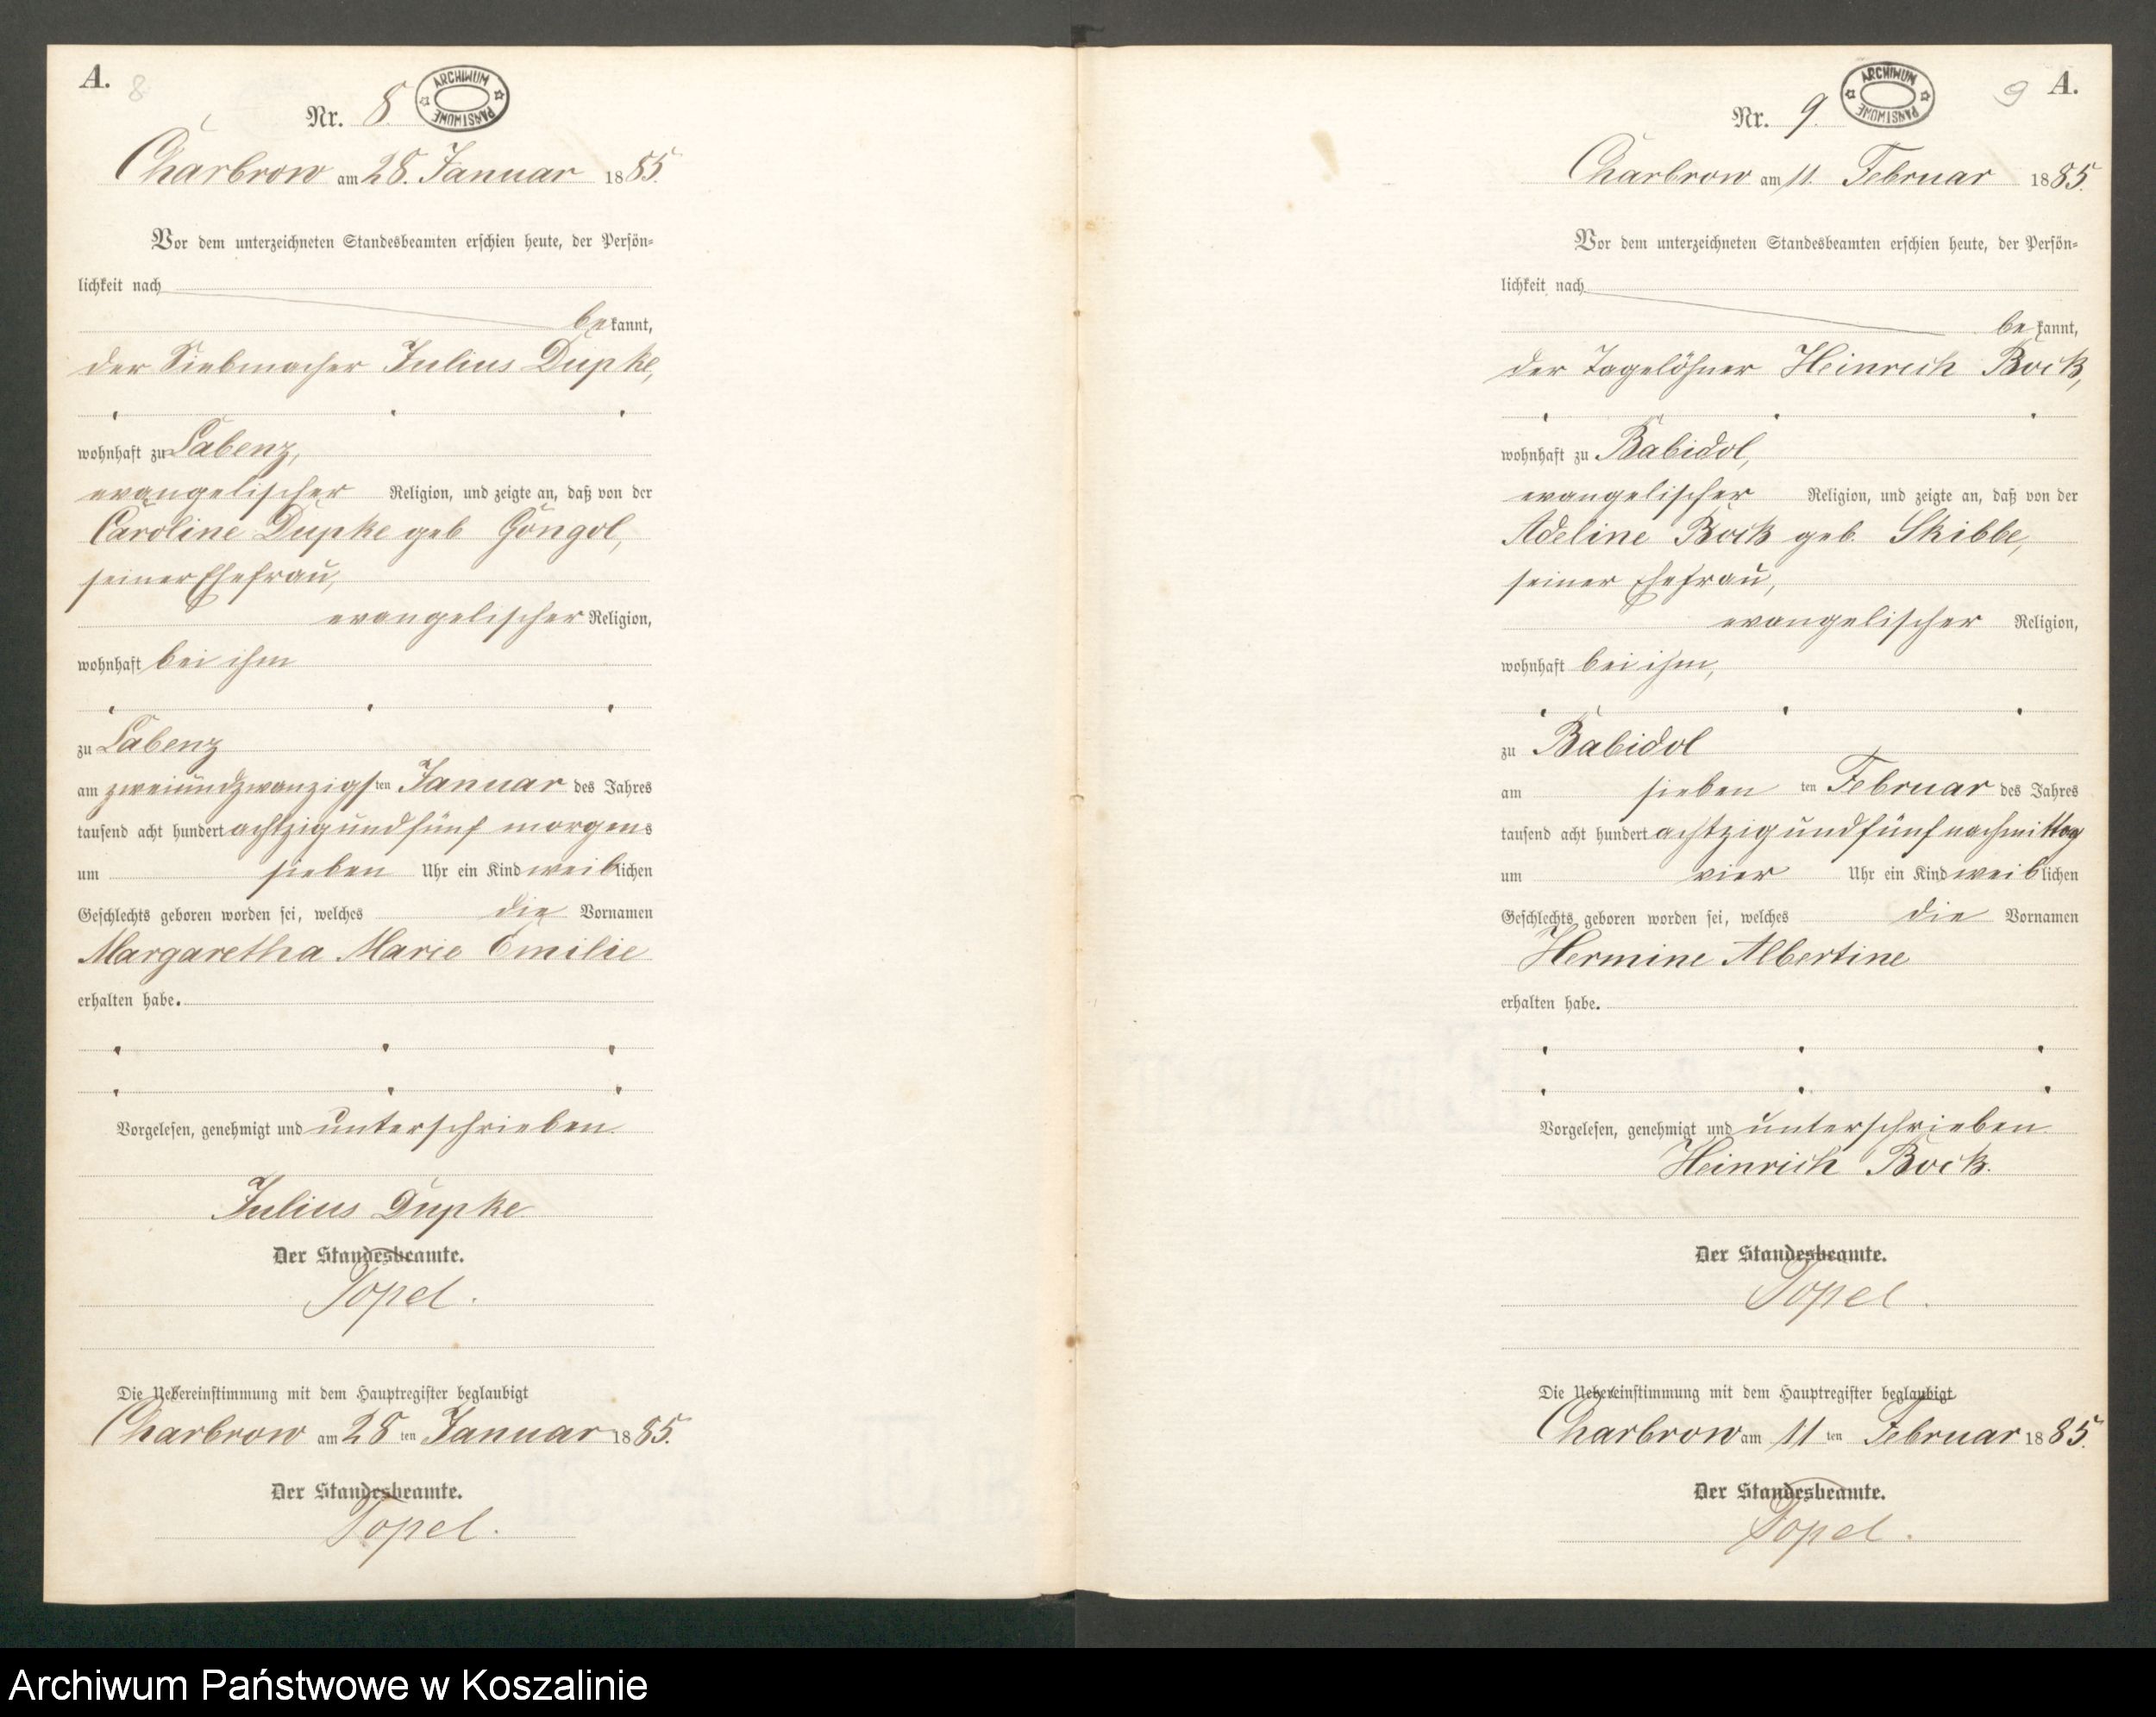 A.
8
Nr. 8.
ARCHIWUM PAŃSTWOWE
Charbrow am 28. Januar 1885.
Vor dem unterzeichneten Standesbeamten erschien heute, der Persön=
lichkeit nach
bekannt,
der Siebmacher Julius Dupke,
wohnhaft zu Labenz,
evangelischer Religion, und zeigte an, daß von der
Caroline Dupke geb Göngol,
seiner Ehefrau,
evangelischer Religion,
wohnhaft bei ihm
zu Labenz
am zweiundzwanzigsten Januar des Jahres
tausend acht hundert achtzig und fünf morgens
um sieben Uhr ein Kind weiblichen
Geschlechts geboren worden sei, welches die Vornamen
Margaretha Marie Emilie
erhalten habe.
Vorgelesen, genehmigt und unterschrieben.
Julius Dupke
Der Standesbeamte.
Topel.
Die Uebereinstimmung mit dem Hauptregister beglaubigt
Charbrow am 28 ten Januar 1885.
Der Standesbeamte.
Topel.
9 A.
Nr. 9.
ARCHIWUM PAŃSTWOWE
Charbrow am 11. Februar 1885.
Vor dem unterzeichneten Standesbeamten erschien heute, der Persön=
lichkeit nach
bekannt,
der Tagelöhner Heinrich Bock,
wohnhaft zu Babidol,
evangelischer Religion, und zeigte an, daß von der
Adeline Bock geb. Skibbe,
seiner Ehefrau,
evangelischer Religion,
wohnhaft bei ihm,
zu Babidol
am sieben ten Februar des Jahres
tausend acht hundert achtzig und fünf nachmittag
um vier Uhr ein Kind weiblichen
Geschlechts geboren worden sei, welches die Vornamen
Hermine Albertine
erhalten habe.
Vorgelesen, genehmigt und unterschrieben.
Heinrich Bock.
Der Standesbeamte.
Topel.
Die Uebereinstimmung mit dem Hauptregister beglaubigt
Charbrow am 11 ten Februar 1885.
Der Standesbeamte.
Topel.
Archiwum Państwowe w Koszalinie